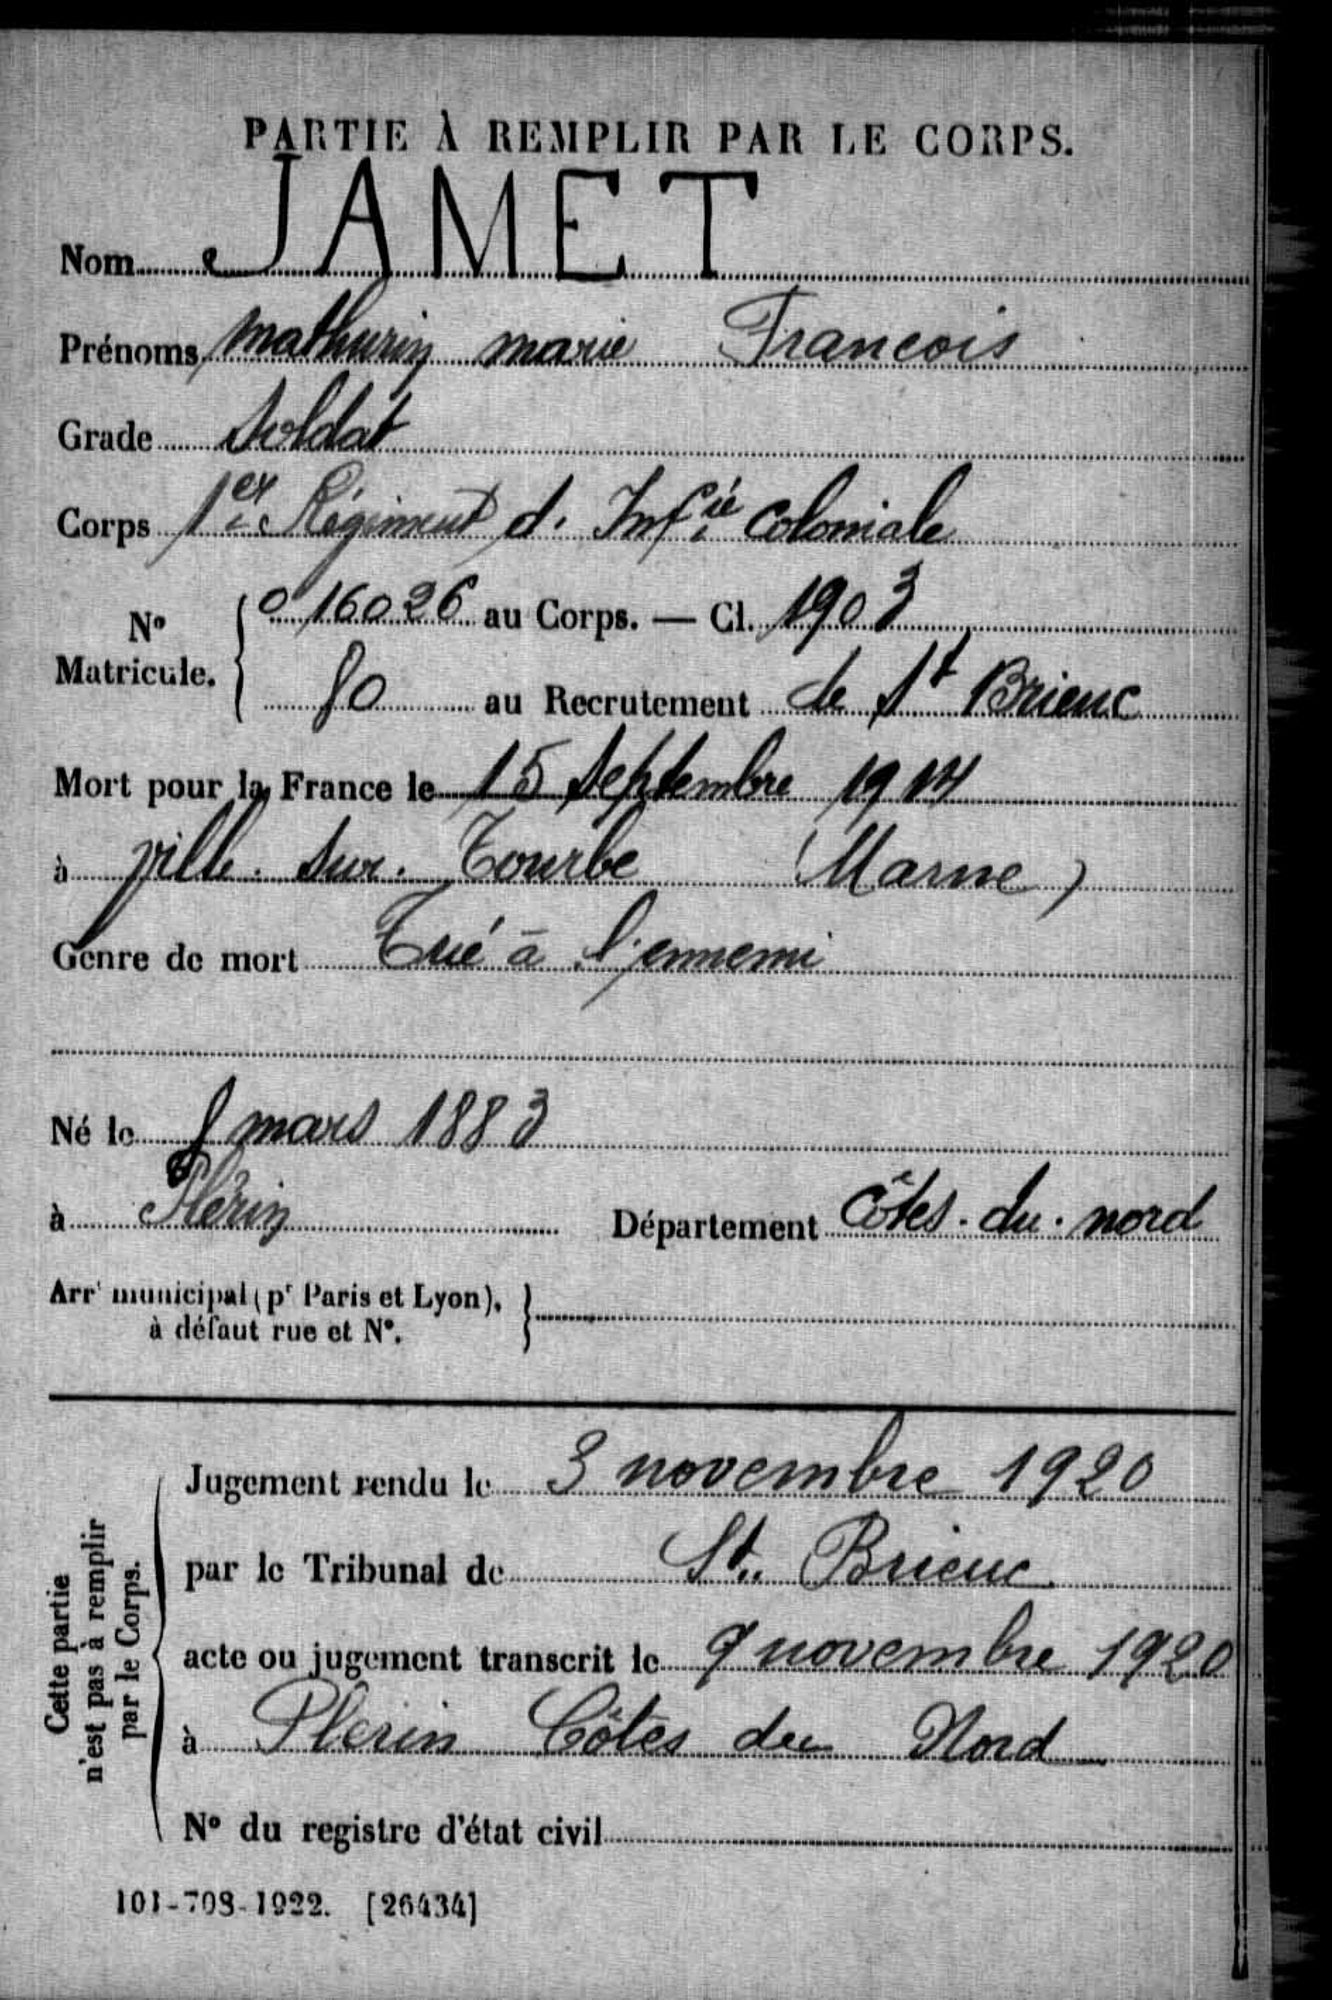 PARTIE À REMPLIR PAR LE CORPS.
Nom JAMET
Prénoms Mathurin Marie Francois
Grade Soldat
Corps 1er Régiment d. Infie Coloniale
No Matricule. 016026 au Corps. — Cl. 1903
80 au Recrutement de St Brieuc
Mort pour la France le 15 Septembre 1914
à Ville. Sur. Tourbe (Marne)
Genre de mort Tué à l'ennemi
Né le 8 mars 1883
à Plérin Département Côtes. du. nord
Arrt municipal (pr Paris et Lyon),
à défaut rue et No.
Cette partie
n'est pas à remplir
par le Corps.
Jugement rendu le 3 novembre 1920
par le Tribunal de St. Brieuc
acte ou jugement transcrit le 9 novembre 1920
à Plerin Côtes du Nord
No du registre d'état civil
101-708-1922. [26434]